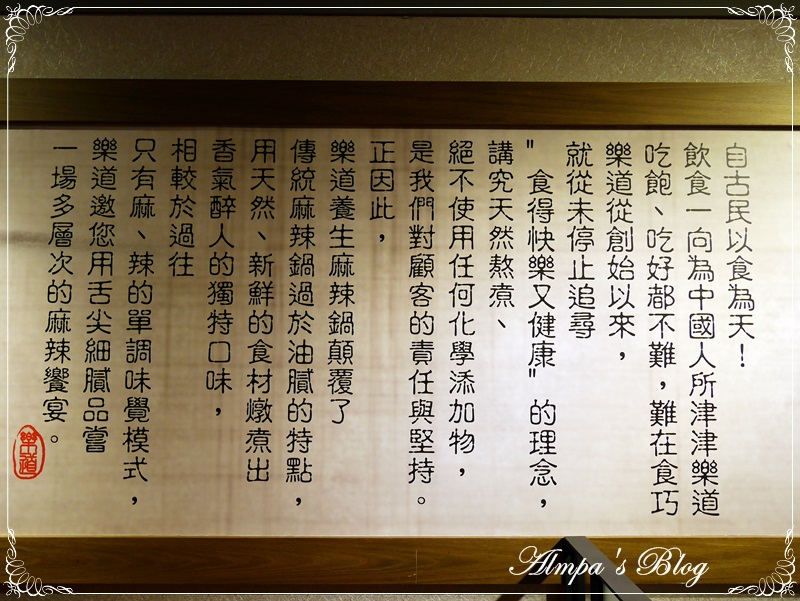 自古民以食為天！
飲食一向為中國人所津津樂道
吃飽、吃好都不難，難在食巧
樂道從創始以來，
就從未停止追尋
"食得快樂又健康"的理念，
講究天然熬煮、
絕不使用任何化學添加物，
是我們對顧客的責任與堅持。
正因此，
樂道養生麻辣鍋顛覆了
傳統麻辣鍋過於油膩的特點，
用天然、新鮮的食材燉煮出
香氣醉人的獨特口味，
相較於過往
只有麻、辣的單調味覺模式，
樂道邀您用舌尖細膩品嘗
一場多層次的麻辣饗宴。
樂道
Almpa's Blog